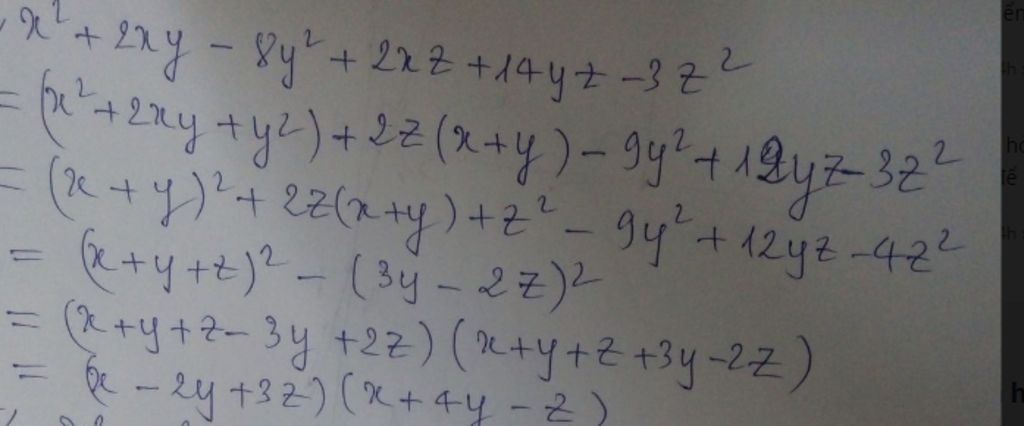 x² + 2xy - 8y² + 2xz + 14yz - 3z²
= (x² + 2xy + y²) + 2z(x+y) - 9y² + 12yz - 3z²
= (x + y)² + 2z(x+y) + z² - 9y² + 12yz - 4z²
= (x + y + z)² - (3y - 2z)²
= (x + y + z - 3y + 2z) (x + y + z + 3y - 2z)
= (x - 2y + 3z) (x + 4y - z)